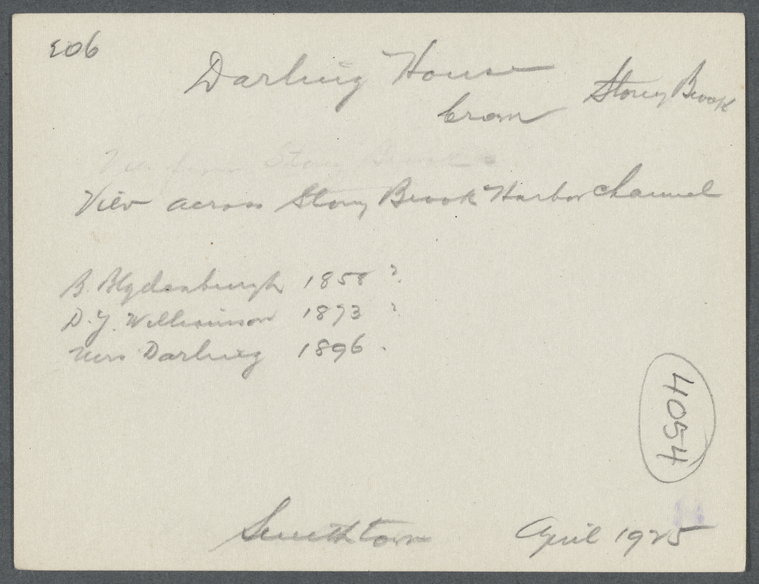 E06
Darling House
from Stony Brook
View across Stony Brook Harbor Channel
B. Blydenburgh 1858 ?
D. Y. Williamson 1873 ?
Mrs Darling 1896 .
4054
Smithtown April 1925